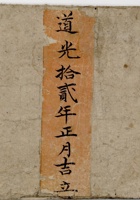 道光拾貳年正月吉立